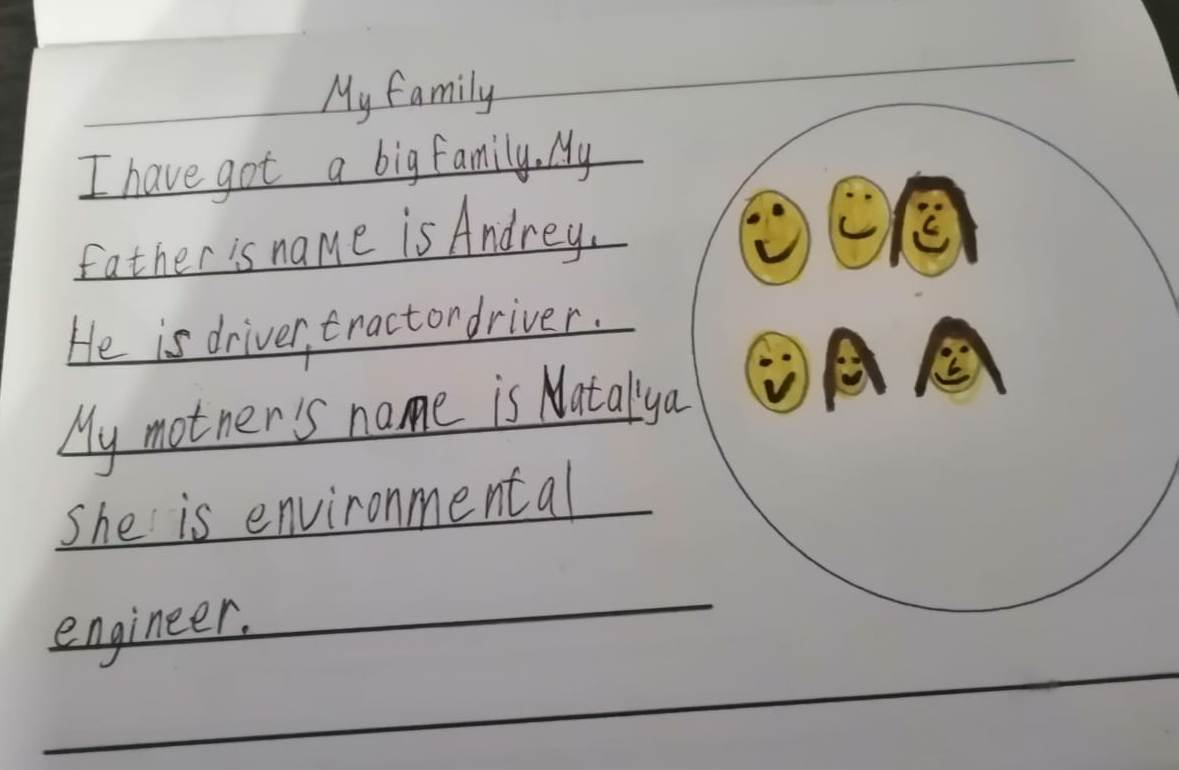 My family
I have got a big family. My
father's name is Andrey.
He is driver, tractor driver.
My mother's name is Natal'ya
She is environmental
engineer.